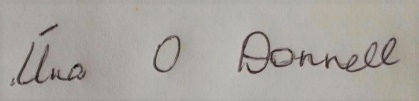 Úna O Donnell